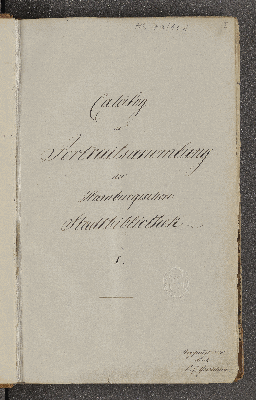 Catalog
der
Portraitsammlung
der
Hamburgischen
Stadtbibliothek
I.